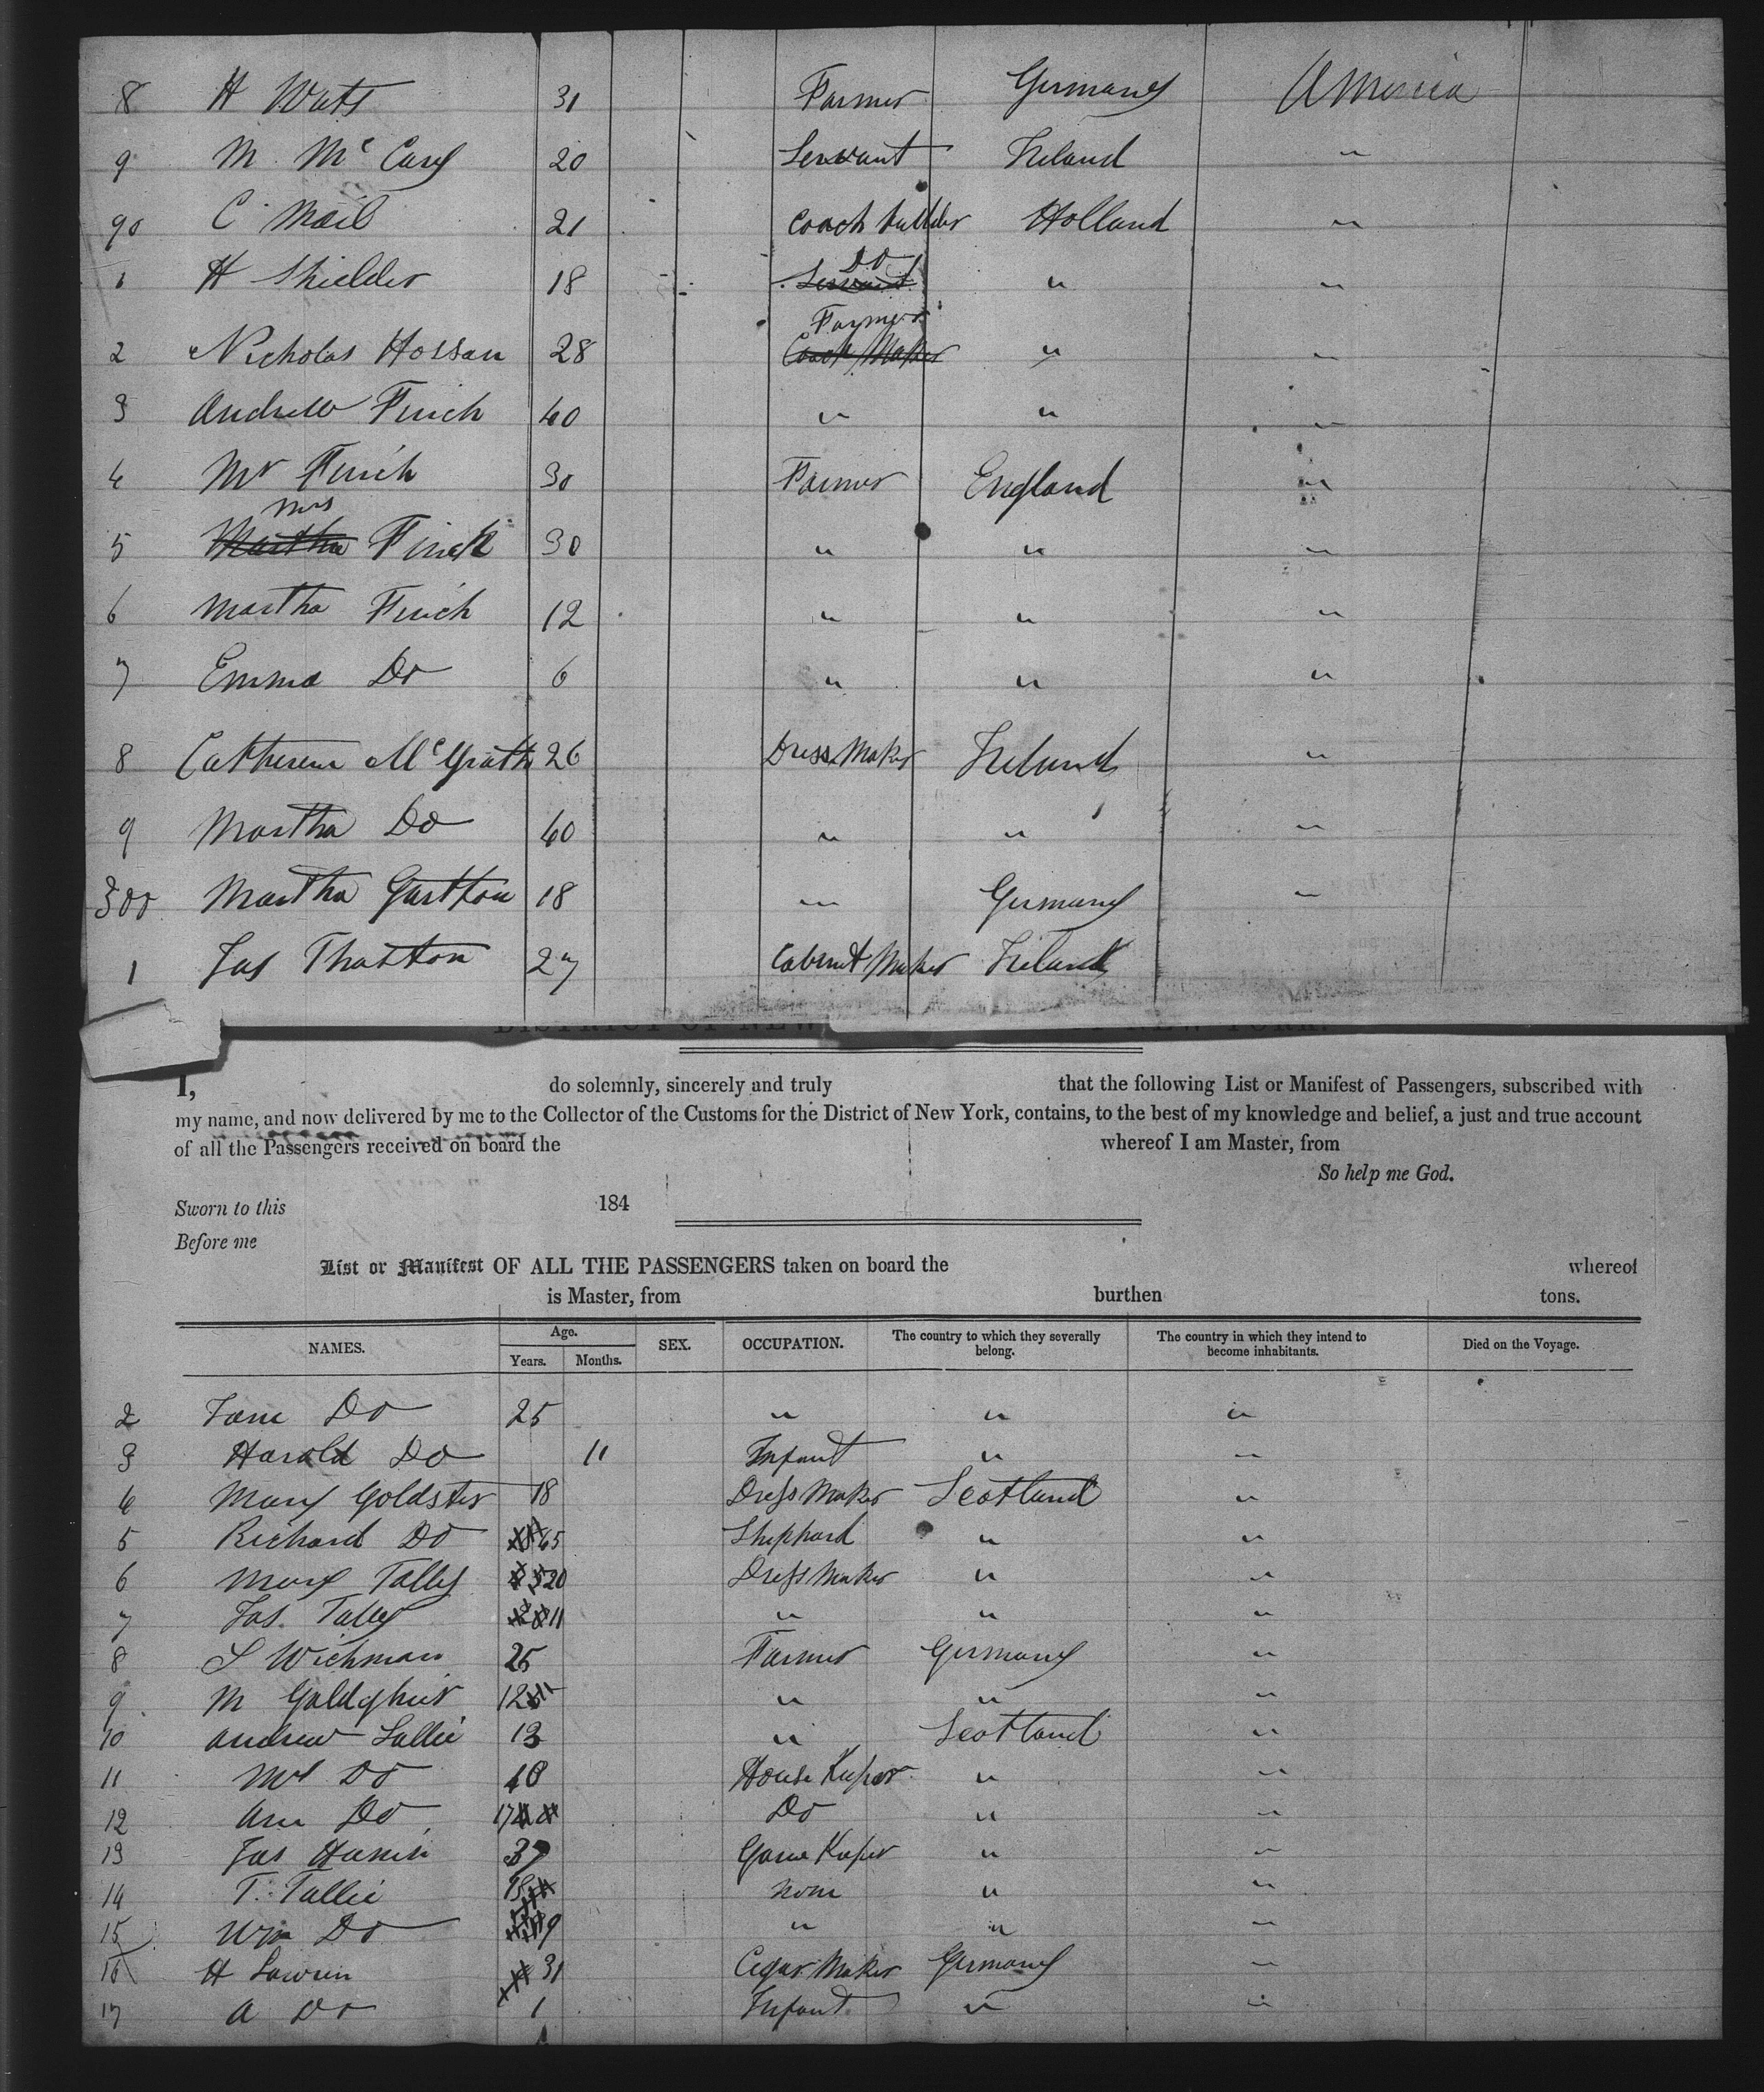 8 H Watts 31 Farmer Germany America
9 M. McCary 20 Servant Ireland "
90 C. Mail 21 Coach builder Holland "
1 H Shielder 18 Servant Do " "
2 Nicholas Hossan 28 Coach Maker Farmer " "
3 Andrew Finch 40 " " "
4 Mr Finch 30 Farmer England "
5 Martha Mrs Finch 30 " " "
6 Martha Finch 12 " " "
7 Emma Do 6 " " "
8 Catherein McGrath 26 Dress Maker Ireland "
9 Martha Do 40 " " "
300 Martha Gartton 18 " Germany "
1 Jas Thatton 27 Cabinet Maker Ireland
DISTRICT OF NEW YORK.
I, do solemnly, sincerely and truly that the following List or Manifest of Passengers, subscribed with
my name, and now delivered by me to the Collector of the Customs for the District of New York, contains, to the best of my knowledge and belief, a just and true account
of all the Passengers received on board the whereof I am Master, from
So help me God.
Sworn to this 184
Before me
List or Manifest OF ALL THE PASSENGERS taken on board the whereof
is Master, from burthen tons.
NAMES. Age. Years. Months. SEX. OCCUPATION. The country to which they severally belong. The country in which they intend to become inhabitants. Died on the Voyage.
2 Jane Do 25 " " "
3 Harald Do 11 Infant " "
4 Mary Goldster 18 Dress Maker Scotland "
5 Richard Do 65 Shephard " "
6 Mary Tally 20 Dress Maker " "
7 Jas. Tally 11 " " "
8 S Wichman 25 Farmer Germany "
9 M 12 " " "
10 Andrew Lallie 13 " Scotland "
11 Mrs Do 40 House Keeper " "
12 Ann Do 17 Do " "
13 Jas 37 Game Keeper " "
14 T. Tallie None " "
15 Wm Do 9 " " "
16 H Lawrin 31 Cegar Maker Germany "
17 A Do 1 Infant " "